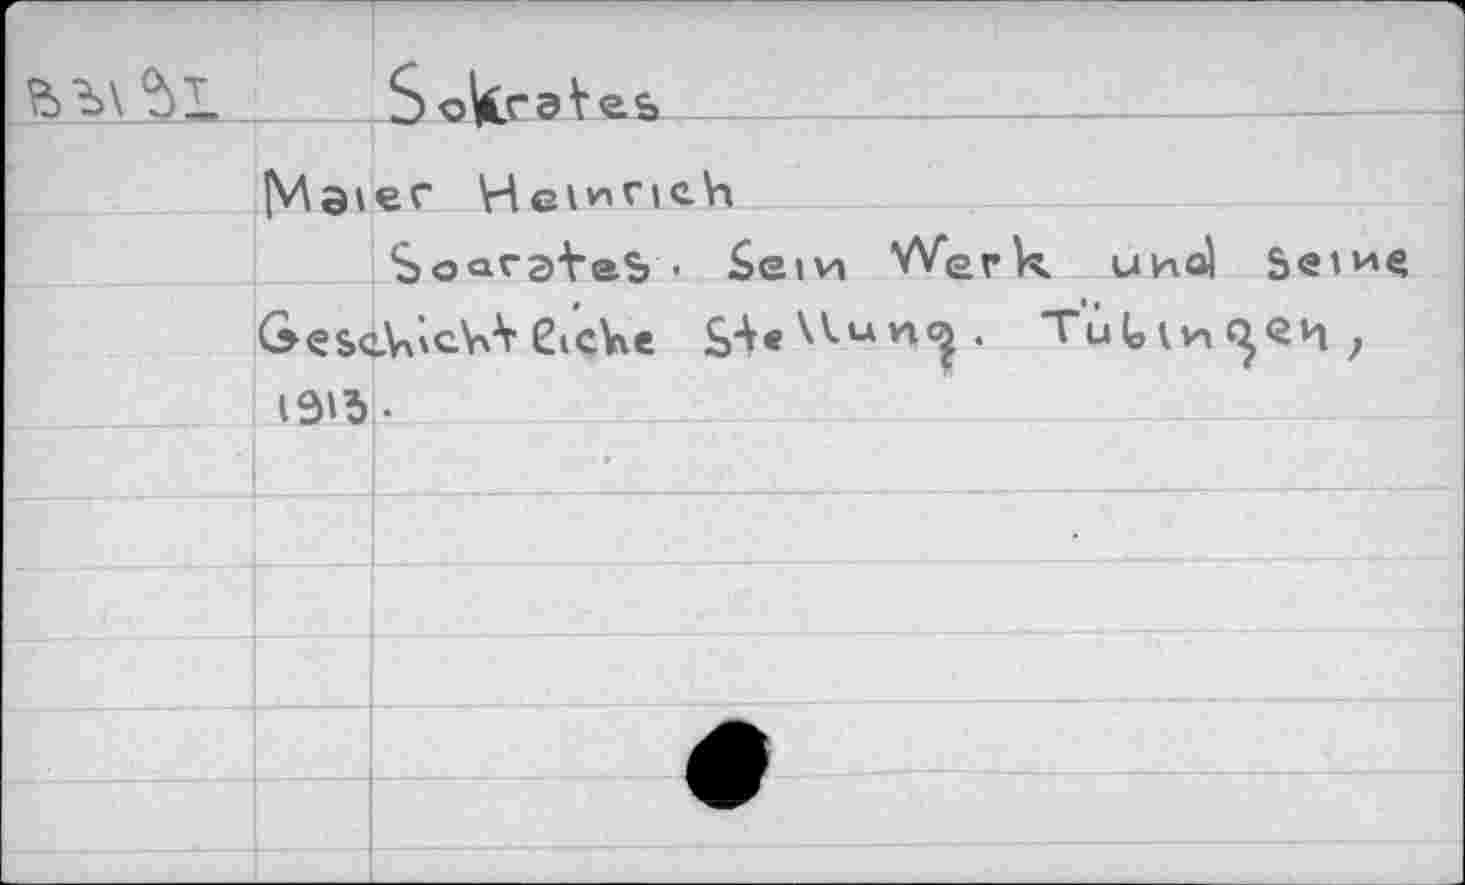 Sokrates
Maier Heinrich
Socrates. Sein Werk und seine
Geschichtliche Stellung. Tübingen,
1913.